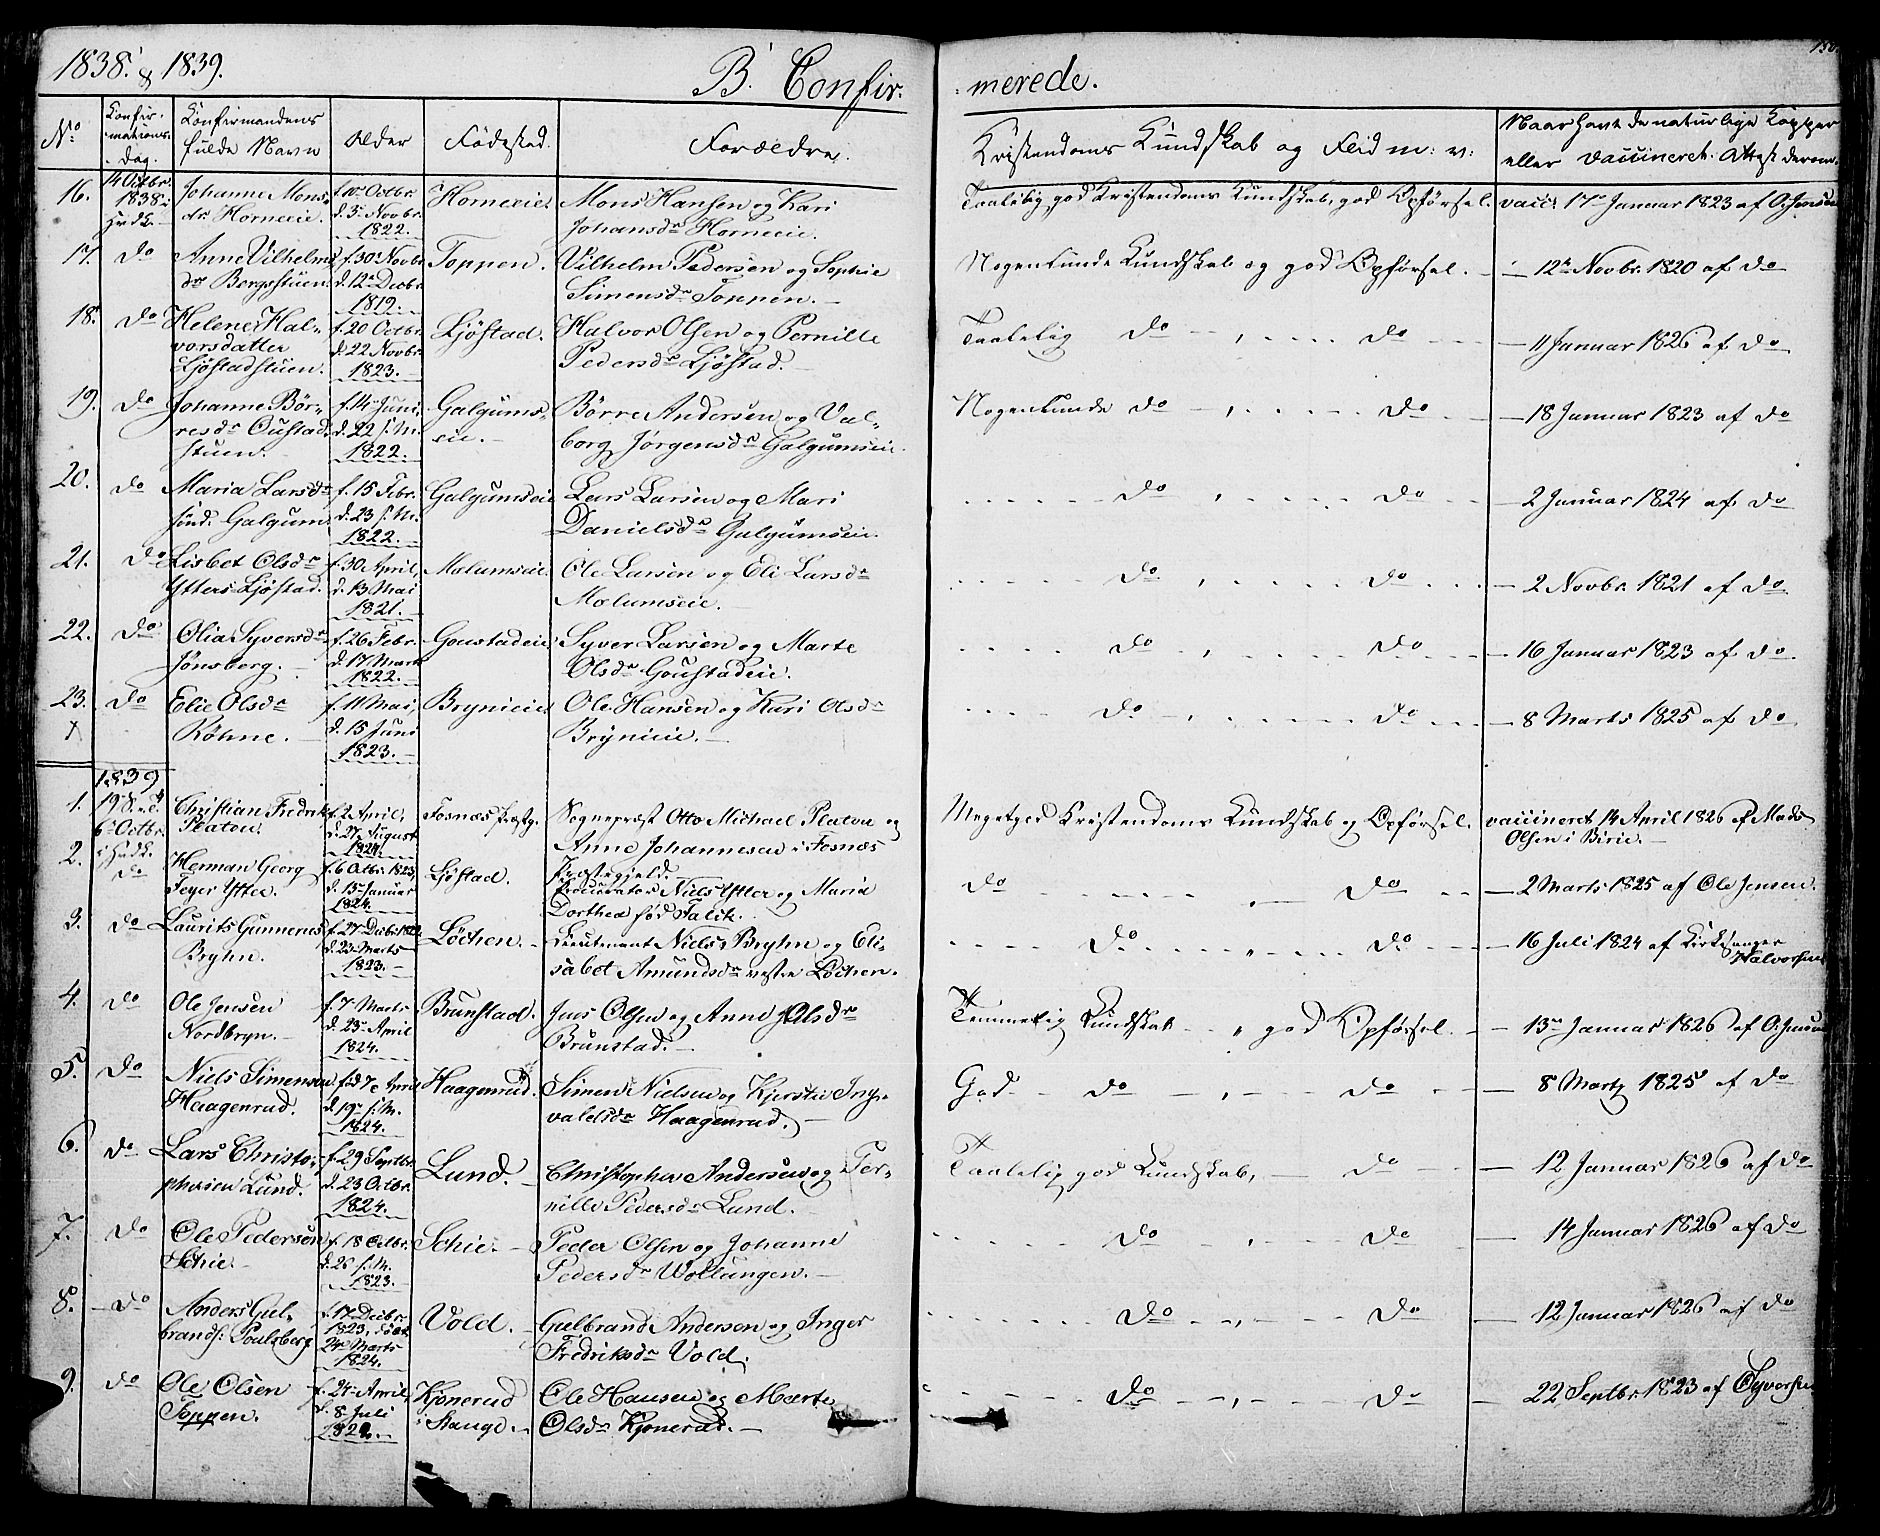 1838 & 1839.
B. Confir-
merede.
No
Confir-
mations-
Dag.
Confirmandens
fulde Navn
Alder
Fødested.
Forældre.
Kristendoms Kundskab og Flid m: v:
Naar havt de naturlige Kopper
eller vaccineret. Attest derom.
16. 14 Octbr. 1838 i Hvdk. Johanne Mons- dr Horneeie. f. 10 Octbr. d. 3 Novbr. 1822. Horneeie. Mons Hansen og Kari Johansdr Horneeie. Taalelig god Kristendoms Kundskab, god Opførsel. vacc. 17 Januar 1823 af O. Jensen
17. do Anne Vilhelms dr Bergstuen. f. 30 Novbr d. 12 Decbr. 1819. Toppen. Vilhelm Pedersen og Sophie Simensdr Toppen. Nogenlunde Kundskab og god Opførsel. 12 Novbr. 1820 af do
18. do Helene Hal- vorsdatter Ljøstadstuen. f. 20 Octbr. d. 22 Novbr. 1823. Ljøstad. Halvor Olsen og Pernille Pedersdr Ljøstad. Taalelig do do 11 Januar 1826 af do
19. do Johanne Bør- resdr Oustad- stuen. f. 14 Juni, d. 22 s. M. 1822. Galgums- eie. Børre Andersen og Val- borg Jørgensdr Galgumseie. Nogenlunde do do 18 Januar 1823 af do
20. do Maria Larsdr Galgum. f. 15 Febr. d. 23 s. M. 1822. Galgumseie Lars Larsen og Mari Danielsdr Galgumseie. do do 2 Januar 1824 af do
21. do Lisbet Olsdr Ytters Ljøstad. f. 30 April, d. 13 Mai 1821. Mælumseie. Ole Larsen og Eli Larsdr Mælumseie. do do 2 Novbr 1821 af do
22. do Olia Syversdr Jønsberg. f. 26 Febr. d. 17 Marts 1822. Goustadeie Syver Larsen og Marte Olsdr Goustadeie. do do 16 Januar 1823 af do
23. do Elie Olsdr Røhne. f. 11 Mai, d. 15 Juni 1823. Bryneeie Ole Hansen og Kari Olsdr Bryneeie. do do 8 Marts 1825 af do
1839
1. 6 Octbr. i Hvdk. Christian Fredrik Platou. f. 2 April, d. 27 August 1824. Fosnæs Præstg. Sognepræst Otto Michael Platou og Anne Johannesen i Fosnæs Præstegjeld. Meget god Kristendoms Kundskab og Opførsel. vaccineret 14 April 1826 af Mads Olsen i Birie.
2. do Herman Georg Feyer Ytter. f. 6 Octbr. 1823, d. 13 Januar 1824. Ljøstad. Procurator Niels Ytter og Maria Dorthea fød Falch. do do 2 Marts 1825 af Ole Jensen.
3. do Laurits Gunnerus Bryhn. f. 27 Decbr. d. 23 Marts 1823. Løchen. Lieutenant Niels Bryhn og Eli- sabet Amundsdr vestre Løchen. do do 16 Juli 1824 af Kirkesanger Halvorsen
4. do Ole Jensen Nordbryn. f. 7 Marts d. 23 April 1824. Brunstad. Jens Olsen og Anne Olsdr Brunstad. Temmelig Kundskab, god Opførsel. 13 Januar 1826 af O. Jensen
5. do Niels Simensen Haagenrud. fød 7 April d. 19 s. M. 1824. Haagenrud. Simen Nielsen og Kjerstie Ing- valdsdr Haagenrud. God do do 8 Marts 1825 af do
6. do Lars Christo- phersen Lund. f. 29 Septbr. d. 23 Octbr. 1824. Lund. Christopher Andersen og Per- nille Pedersdr Lund. Taalelig god Kundskab, do 12 Januar 1826 af do
7. do Ole Pedersen Schie. f. 18 Octbr. d. 26 s. M. 1823. Schie. Peder Olsen og Johanne Pedersdr Wollungen. do do 14 Januar 1826 af do
8. do Anders Gul- brands: Poulsberg f. 17 Decbr. 1823, døbt 24 Marts 1824. Vold. Gulbrand Andersen og Inger Fredriksdr Vold. do do 12 Januar 1826 af do
9. do Ole Olsen Toppen. f. 24 April, d. 8 Juli Kjonerud i Stange. Ole Hansen og Marte Olsdr Kjonerud. do do 22 Septbr. 1823 af Syversen